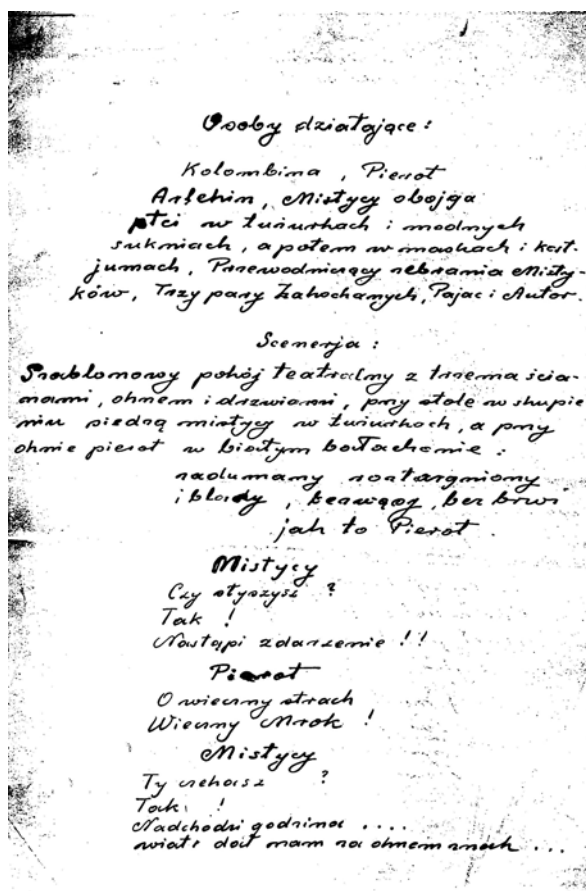 Osoby działające :
Kolombina , Pierot
Arlekin, Mistycy obojga
płci w tużurkach i modnych
sukniach, a potem w maskach i kost-
jumach, Przewodniczący zebrania Misty-
ków, Trzy pary Zakochanych, Pajac i Autor.
Scenerja :
Szablonowy pokój teatralny z trzema ścia-
nami, oknem i drzwiami, przy stole w skupie
niu siedzą mistycy w tużurkach, a przy
oknie pierot w białym bałachonie :
zadumany roztargniony
i blady , bezwąsy, bez brwi
jak to Pierot .
Mistycy
Czy słyszysz ?
Tak !
Nastąpi zdarzenie !!
Pierot
O wieczny strach
Wieczny Mrok !
Mistycy
Ty czekasz ?
Tak !
Nadchodzi godzina ....
wiatr dał nam za oknem znak ...